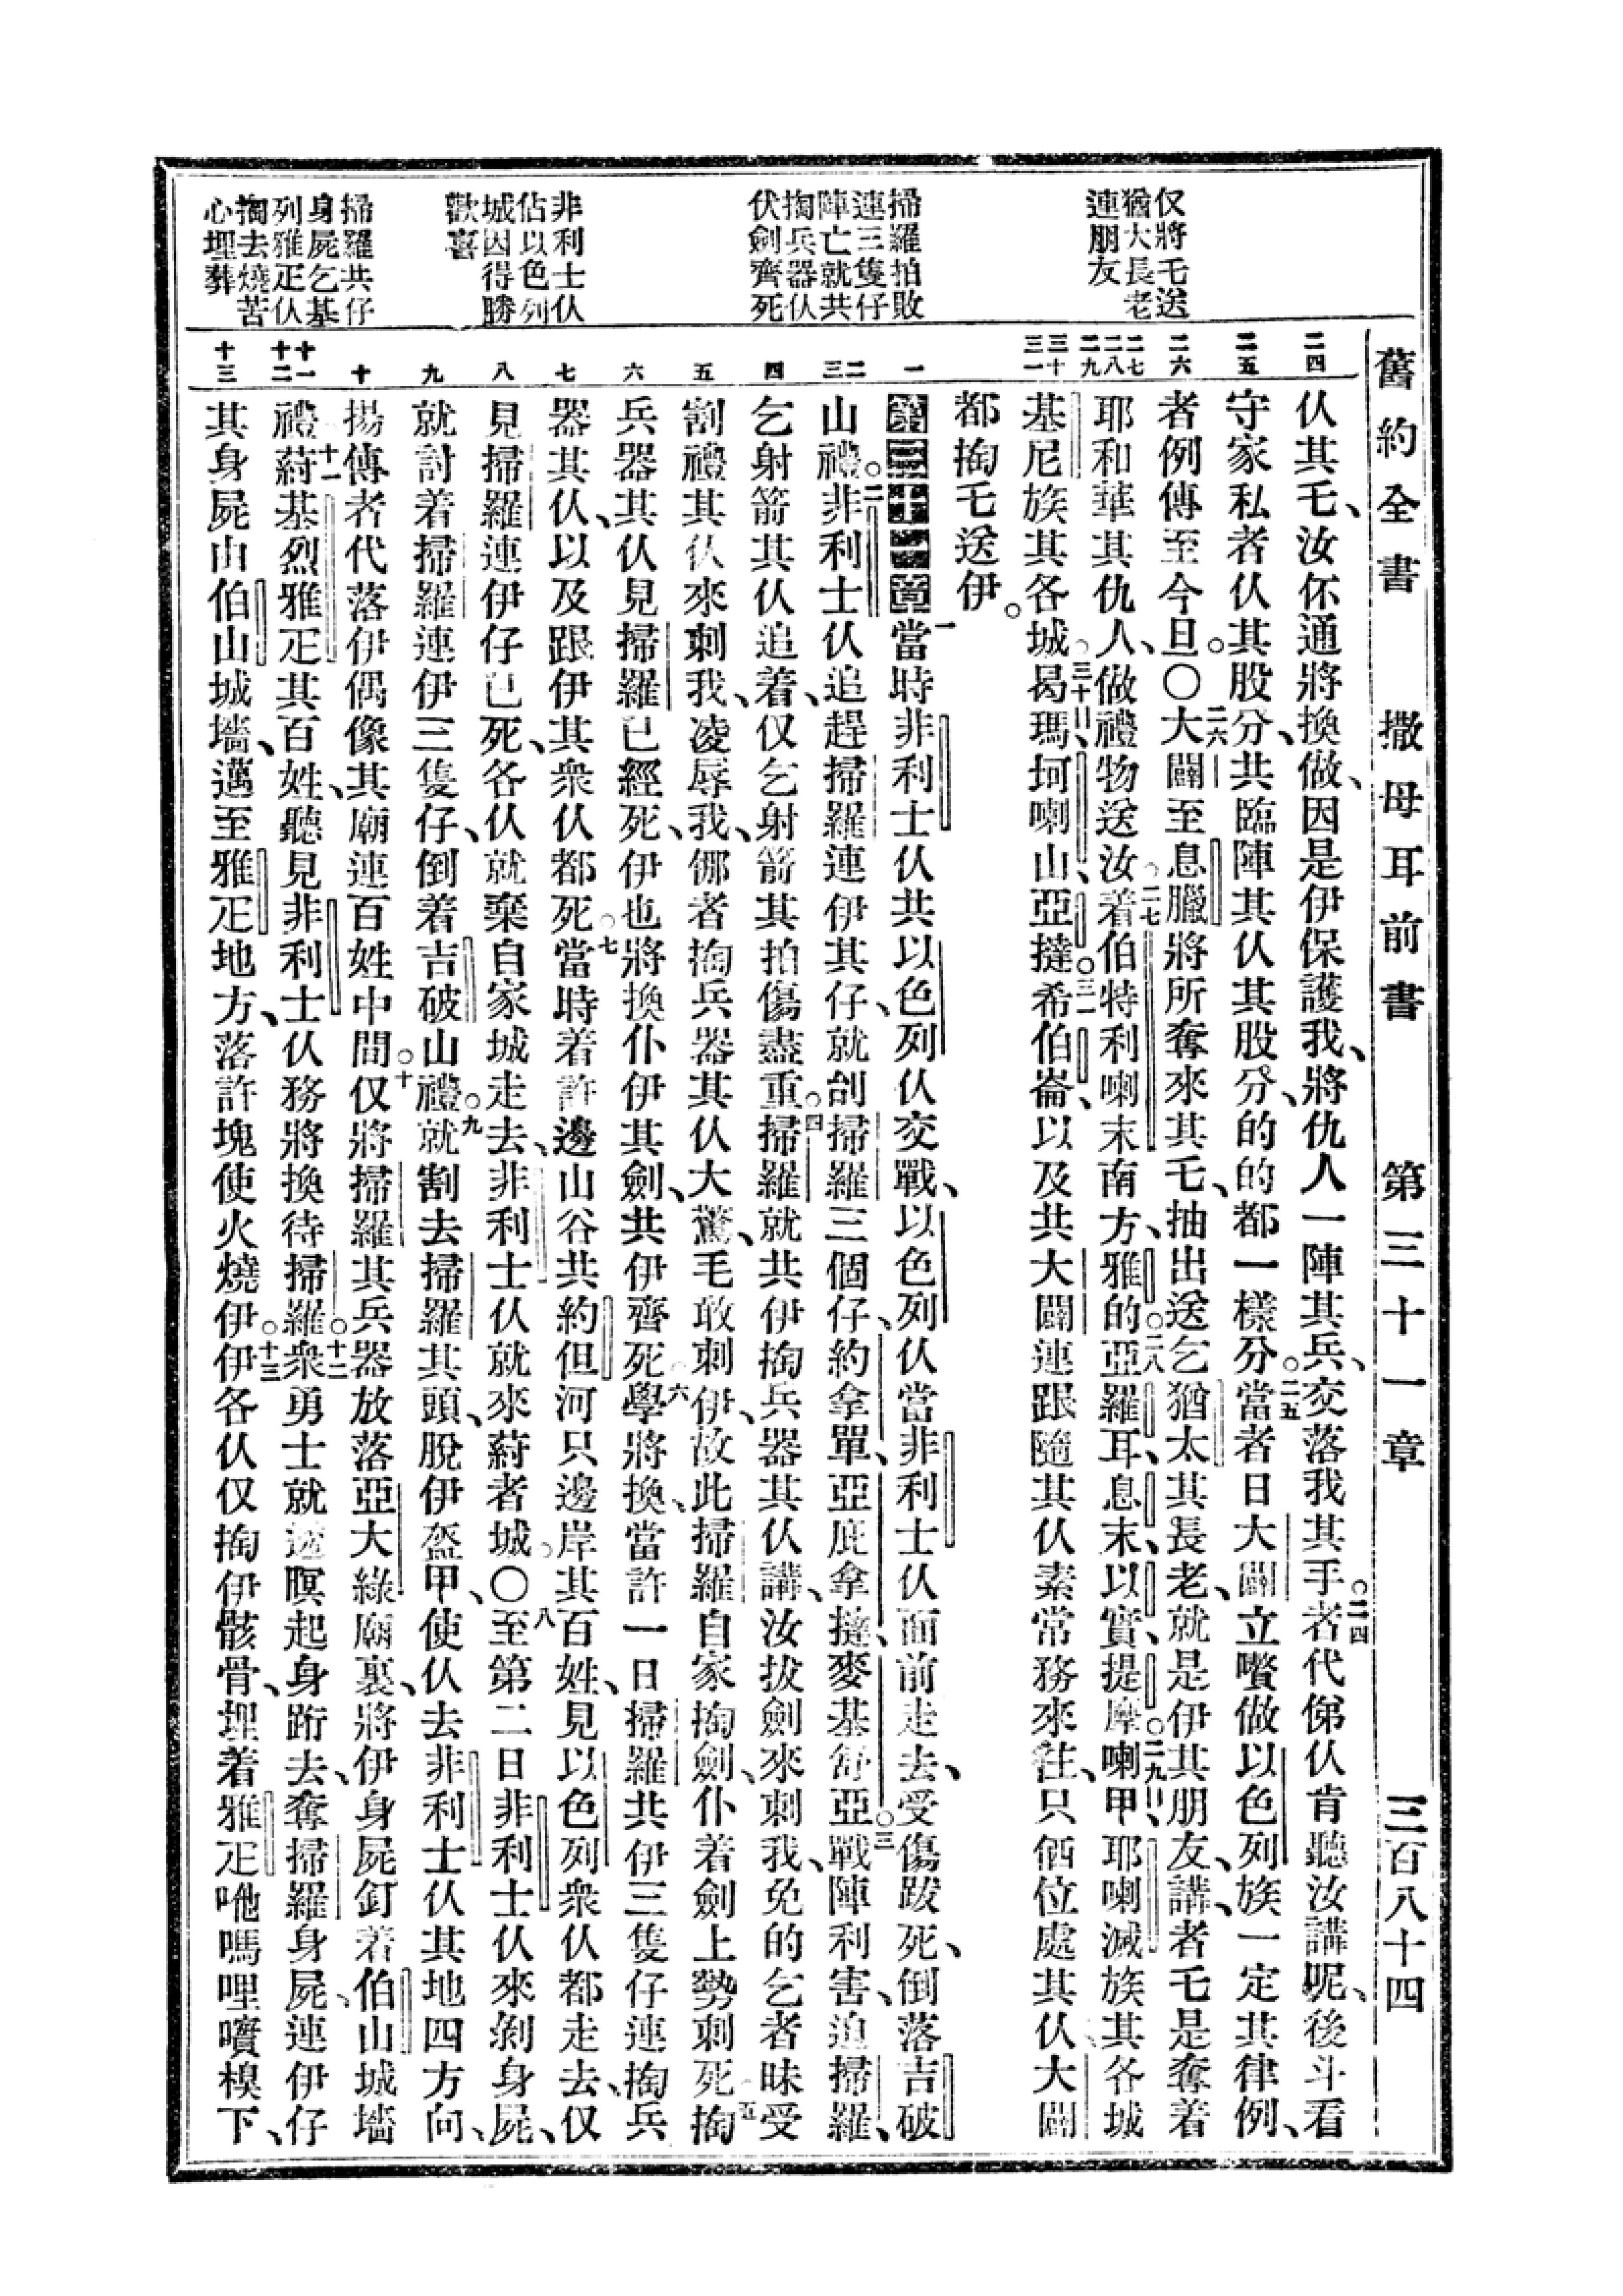 舊約全書 撒母耳前書 第三十一章 三百八十四
仅將乇送
猶大長老
連朋友
掃羅拍敗
連三隻仔
陣亡就共
掏兵器仈
伏劍齊死
非利士仈
佔以色列
城因得勝
歡喜
掃羅共仔
身屍乞基
列雅疋仈
掏去燒苦
心埋葬
二四
二五
二六
二七
二八
二九
三十
三一
一
二
三
四
五
六
七
八
九
十
十一
十二
十三
仈其乇、汝伓通將換做、因是伊保護我、將仇人一陣其兵、交落我其手。二四者代俤仈肯聽汝講呢、後斗看
守家私者仈其股分、共臨陣其仈其股分、的的都一樣分。二五當者日大闢立嚽做以色列族一定其律例、
者例傳至今旦。〇二六大闢至息臘將所奪來其乇、抽出送乞猶太其長老、就是伊其朋友、講、者乇是奪着
耶和華其仇人、做禮物送汝。二七着伯特利喇末南方、雅的。二八亞羅耳、息末、以實提摩。二九喇甲、耶喇滅族其各城
基尼族其各城。三十曷瑪、坷喇山、亞撻。三一希伯崙、以及共大闢連跟隨其仈素常務來往、只㐌位處其仈、大闢
都掏乇送伊。
第三十一章一當時非利士仈共以色列仈交戰、以色列仈當非利士仈面前走去、受傷跋死、倒落吉破
山禮。二非利士仈追趕掃羅連伊其仔、就刣掃羅三個仔、約拿單、亞庇拿撻、麥基舒亞。三戰陣利害、追掃羅、
乞射箭其仈追着、仅乞射箭其拍傷盡重。四掃羅就共伊掏兵器其仈講、汝拔劍來刺我、免的乞者昧受
割禮其仈來刺我、凌辱我、㑚者掏兵器其仈大驚、毛敢刺伊、故此掃羅自家掏劍、仆着劍上勢刺死。五掏
兵器其仈見掃羅已經死、伊也將換仆伊其劍、共伊齊死。六學將換、當許一日掃羅共伊三隻仔連掏兵
器其仈、以及跟伊其衆仈都死。七當時着許邊山谷共約但河只邊岸其百姓、見以色列衆仈都走去、仅
見掃羅連伊仔已死、各仈就棄自家城走去、非利士仈就來蒔者城。〇八至第二日非利士仈來剝身屍、
就討着掃羅連伊三隻仔、倒着吉破山禮。九就割去掃羅其頭、脫伊盔甲、使仈去非利士仈其地四方向、
揚傳者代落伊偶像其廟連百姓中間。十仅將掃羅其兵器放落亞大綠廟裏、將伊身屍釘着伯山城墻
禮。十一蒔基烈雅疋其百姓、聽見非利士仈務將換待掃羅。十二衆勇士就透暝起身跗去、奪掃羅身屍、連伊仔
其身屍由伯山城墻、邁至雅疋地方、落許塊使火燒伊。十三伊各仈仅掏伊骸骨、埋着雅疋吔嗎哩嚽模下、